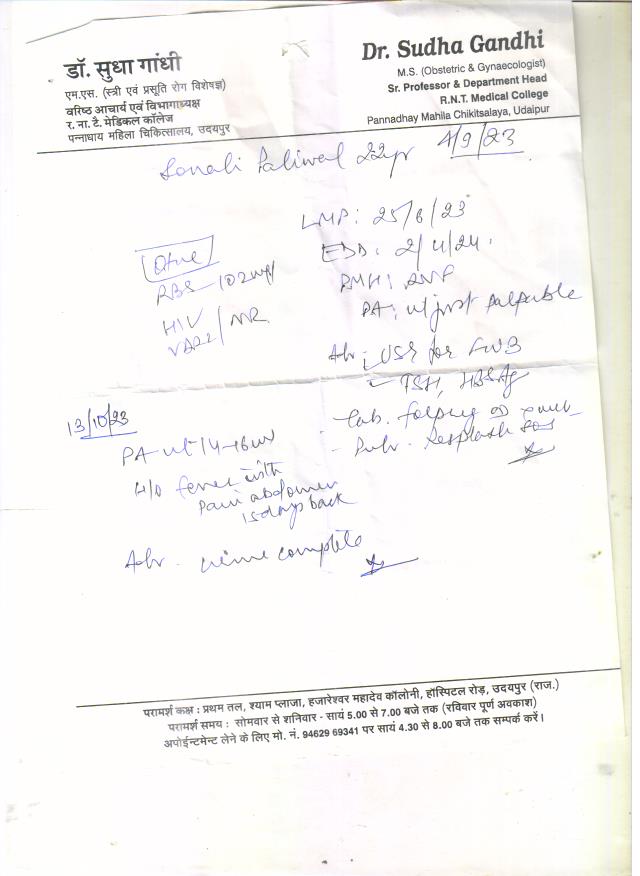 डॉ. सुधा गांधी
एम.एस. (स्त्री एवं प्रसूति रोग विशेषज्ञ)
वरिष्ठ आचार्य एवं विभागाध्यक्ष
र. ना. टै. मेडिकल कॉलेज
पन्नाधाय महिला चिकित्सालय, उदयपुर
Dr. Sudha Gandhi
M.S. (Obstetric & Gynaecologist)
Sr. Professor & Department Head
R.N.T. Medical College
Pannadhay Mahila Chikitsalaya, Udaipur
Sonali Paliwal 22yr 4/9/23
LMP: 25/6/23
EDD: 2/4/24.
PA: ut just palpable
RBS - 102mg
HIV
NR
Adv: USR for FWB
- TSH, HBSAg
13/10/23
PA ut 14-16w
H/o fever with
Pain abdomen
15days back
Adv. urine complete
परामर्श कक्ष : प्रथम तल, श्याम प्लाजा, हजारेश्वर महादेव कॉलोनी, हॉस्पिटल रोड़, उदयपुर (राज.)
परामर्श समय : सोमवार से शनिवार - सायं 5.00 से 7.00 बजे तक (रविवार पूर्ण अवकाश)
अपोईन्टमेन्ट लेने के लिए मो. नं. 94629 69341 पर सायं 4.30 से 8.00 बजे तक सम्पर्क करें।